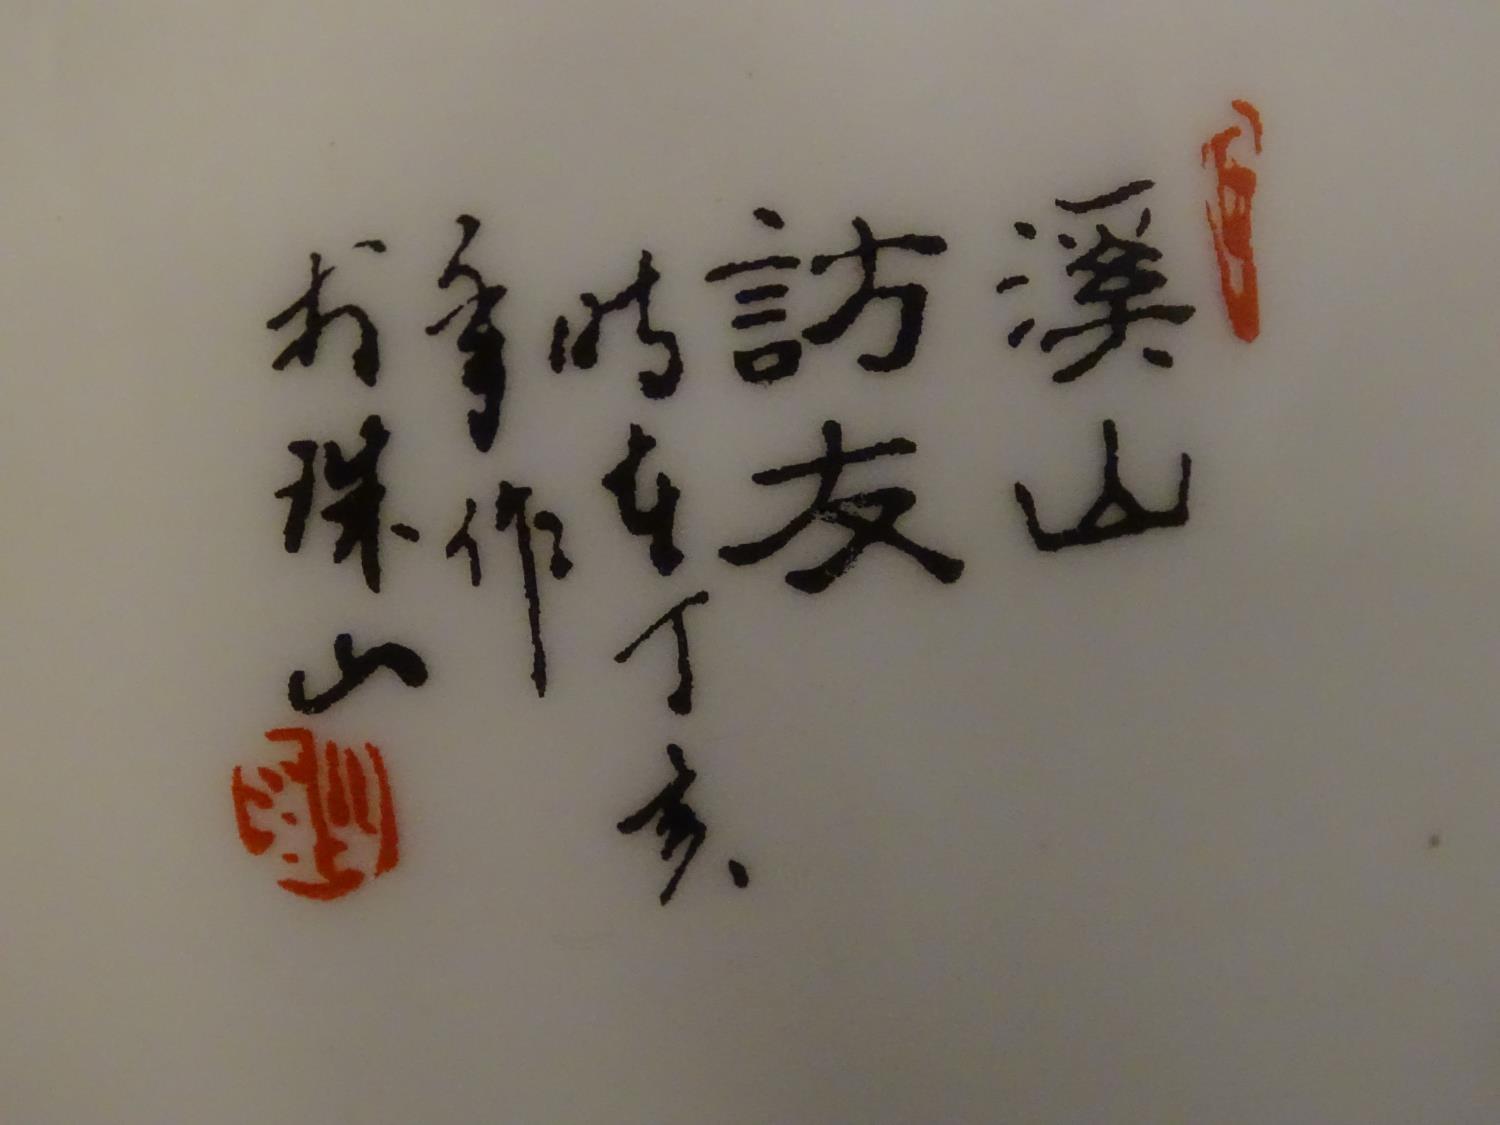 溪山
訪友
時在丁亥
年作
於珠山